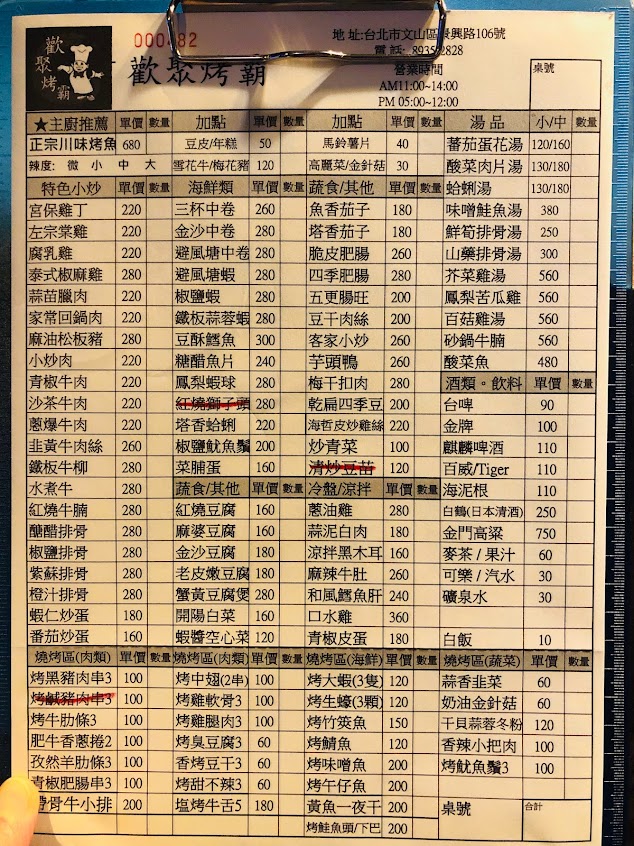 歡聚烤霸
000482
歡聚烤霸
地 址:台北市文山區景興路106號
電 話: 89352828
營業時間
AM11:00~14:00
PM 05:00~12:00
桌號
★主廚推薦 單價 數量 加點 單價 數量 加點 單價 數量 湯 品 小/中 數量
正宗川味烤魚 680 豆皮/年糕 50 馬鈴薯片 40 蕃茄蛋花湯 120/160
辣度: 微 小 中 大 雪花牛/梅花豬 120 高麗菜/金針菇 30 酸菜肉片湯 130/180
特色小炒 單價 數量 海鮮類 單價 數量 蔬食/其他 單價 數量 蛤蜊湯 130/180
宮保雞丁 220 三杯中卷 260 魚香茄子 180 味噌鮭魚湯 380
左宗棠雞 220 金沙中卷 280 塔香茄子 180 鮮筍排骨湯 250
腐乳雞 220 避風塘中卷 280 脆皮肥腸 260 山藥排骨湯 300
泰式椒麻雞 280 避風塘蝦 280 四季肥腸 280 芥菜雞湯 560
蒜苗臘肉 220 椒鹽蝦 280 五更腸旺 200 鳳梨苦瓜雞 560
家常回鍋肉 220 鐵板蒜蓉蝦 280 豆干肉絲 200 百菇雞湯 560
麻油松板豬 280 豆酥鱈魚 300 客家小炒 260 砂鍋牛腩 560
小炒肉 220 糖醋魚片 240 芋頭鴨 260 酸菜魚 480
青椒牛肉 220 鳳梨蝦球 280 梅干扣肉 280 酒類。飲料 單價 數量
沙茶牛肉 220 紅燒獅子頭 280 乾扁四季豆 200 台啤 90
蔥爆牛肉 220 塔香蛤蜊 220 海哲皮炒雞絲 220 金牌 100
韭黃牛肉絲 260 椒鹽魷魚鬚 200 炒青菜 100 麒麟啤酒 110
鐵板牛柳 280 菜脯蛋 160 清炒豆苗 120 百威/Tiger 110
水煮牛 280 蔬食/其他 單價 數量 冷盤/涼拌 單價 數量 海泥根 110
紅燒牛腩 280 紅燒豆腐 160 蔥油雞 280 白鶴(日本清酒) 250
醣醋排骨 280 麻婆豆腐 160 蒜泥白肉 180 金門高粱 750
椒鹽排骨 280 金沙豆腐 180 涼拌黑木耳 160 麥茶 / 果汁 60
紫蘇排骨 280 老皮嫩豆腐 180 麻辣牛肚 260 可樂 / 汽水 30
橙汁排骨 280 蟹黃豆腐煲 280 和風鱈魚肝 240 礦泉水 30
蝦仁炒蛋 180 開陽白菜 160 口水雞 360
番茄炒蛋 160 蝦醬空心菜 120 青椒皮蛋 180 白飯 10
燒烤區(肉類) 單價 數量 燒烤區(肉類) 單價 數量 燒烤區(海鮮) 單價 數量 燒烤區(蔬菜) 單價 數量
烤黑豬肉串3 100 烤中翅(2串) 100 烤大蝦(3隻) 120 蒜香韭菜 60
烤鹹豬肉串3 100 烤雞軟骨3 100 烤生蠔(3顆) 120 奶油金針菇 60
烤牛肋條3 100 烤雞腿肉3 100 烤竹筴魚 150 干貝蒜蓉冬粉 120
肥牛香蔥捲2 100 烤臭豆腐3 60 烤鯖魚 120 香辣小把肉 100
孜然羊肋條3 100 香烤豆干3 60 烤味噌魚 200 烤魷魚鬚3 100
青椒肥腸串3 100 烤甜不辣3 60 烤午仔魚 200
帶骨牛小排 200 塩烤牛舌5 180 黃魚一夜干 200 桌號 合計
烤鮭魚頭/下巴 200